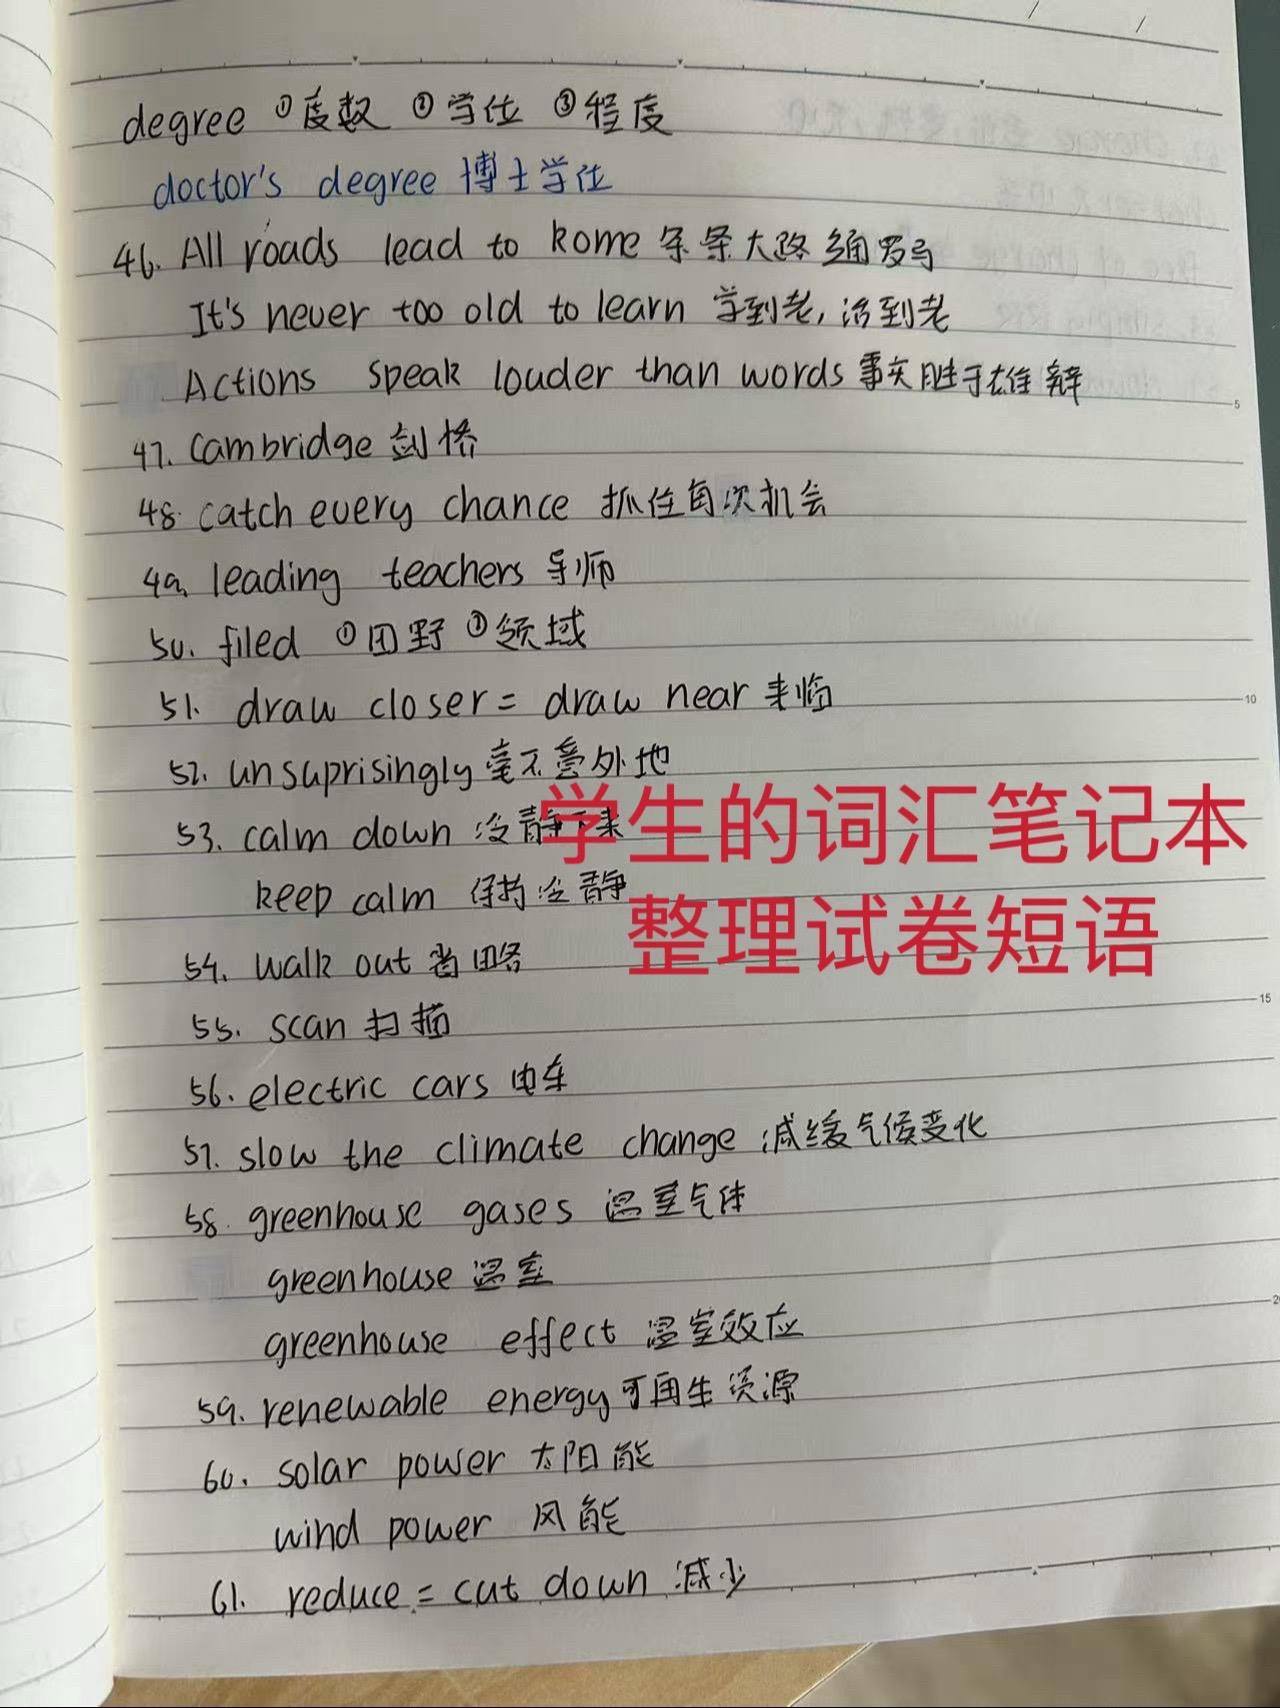 degree ①度数 ②学位 ③程度
doctor's degree 博士学位
46. All roads lead to Rome 条条大路通罗马
It's never too old to learn 学到老,活到老
Actions speak louder than words 事实胜于雄辩
47. Cambridge 剑桥
48. catch every chance 抓住每次机会
49. leading teachers 导师
50. filed ①田野 ②领域
51. draw closer = draw near 来临
52. unsuprisingly 毫不意外地
53. calm down 冷静下来
学生的词汇笔记本
keep calm 保持冷静
整理试卷短语
54. walk out 省略
55. scan 扫描
56. electric cars 电车
57. slow the climate change 减缓气候变化
58. greenhouse gases 温室气体
greenhouse 温室
greenhouse effect 温室效应
59. renewable energy 可再生资源
60. solar power 太阳能
wind power 风能
61. reduce = cut down 减少
5
10
15